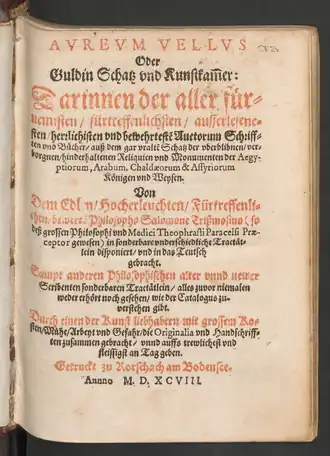 AVREVM VELLVS
Oder
Guldin Schatz vnd Kunstkam̃er:
Darinnen der aller für-
nemisten / fürtreffenlichsten / ausserlesene-
sten / herrlichisten vnd bewehrteste Auctorum Schriff-
ten vnd Bücher / auß dem gar vralte Schatz der vberblibnen / ver-
borgnen / hinderhaltenen Reliquien vnd Monumenten der Aegy-
ptiorum, Arabum, Chaldæorum & Assyriorum
Königen vnd Weysen.
Von
Dem Edlen / Hocherleuchten / Fürtreffenli-
chen / bewerten Philosopho Salomone Trißmosino (so
deß grossen Philosophi vnd Medici Theophrasti Paracelsi Præ-
ceptor gewesen) in sonderbare vnderschiedliche Tractät-
lein disponiert / vnd in das Teutsch
gebracht.
Sampt anderen Philosophischen alter vnnd newer
Scribenten sonderbaren Tractätlein / alles zuvor niemalen
weder erhört noch gesehen / wie der Catalogus zu-
verstehen gibt.
Durch einen der Kunst liebhabern mit grossem Ko-
sten / Mühe / Arbeyt vnd Gefahr / die Originalia vnd Handschriff-
ten zusammen gebracht / vnnd auffs trewlichest vnd
fleissigst an Tag geben.
Getruckt zu Rorschach am Bodensee.
Annno M. D. XCVIII.